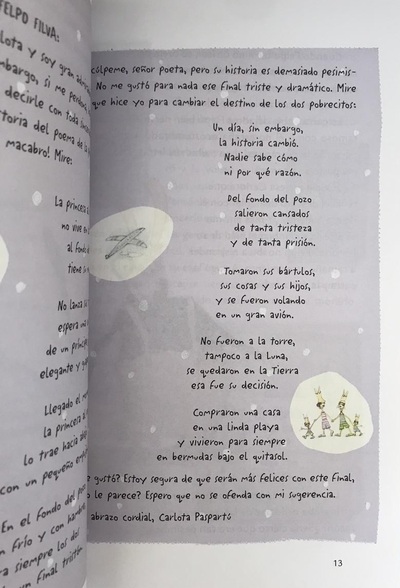 FELPO FILVA:
y soy gran
si me
decirle con toda
del poema de la
macabro! Mire:
La princesa
no vive en
al fondo
No lanza
espera
de un
elegante y
Llegado el
la princesa
lo trae hacia
con un pequeño
En el fondo del
frío y con
siempre los dos
un final
señor poeta, pero su historia es demasiado pesimis-
No me gustó para nada ese final triste y dramático. Mire
que hice yo para cambiar el destino de los dos pobrecitos:
Un día, sin embargo,
la historia cambió.
Nadie sabe cómo
ni por qué razón.
Del fondo del pozo
salieron cansados
de tanta tristeza
y de tanta prisión.
Tomaron sus bártulos,
sus cosas y sus hijos,
y se fueron volando
en un gran avión.
No fueron a la torre,
tampoco a la Luna,
se quedaron en la Tierra
esa fue su decisión.
Compraron una casa
en una linda playa
y vivieron para siempre
en bermudas bajo el quitasol.
gustó? Estoy segura de que serán más felices con este final,
le parece? Espero que no se ofenda con mi sugerencia.
abrazo cordial, Carlota Paspartú
13